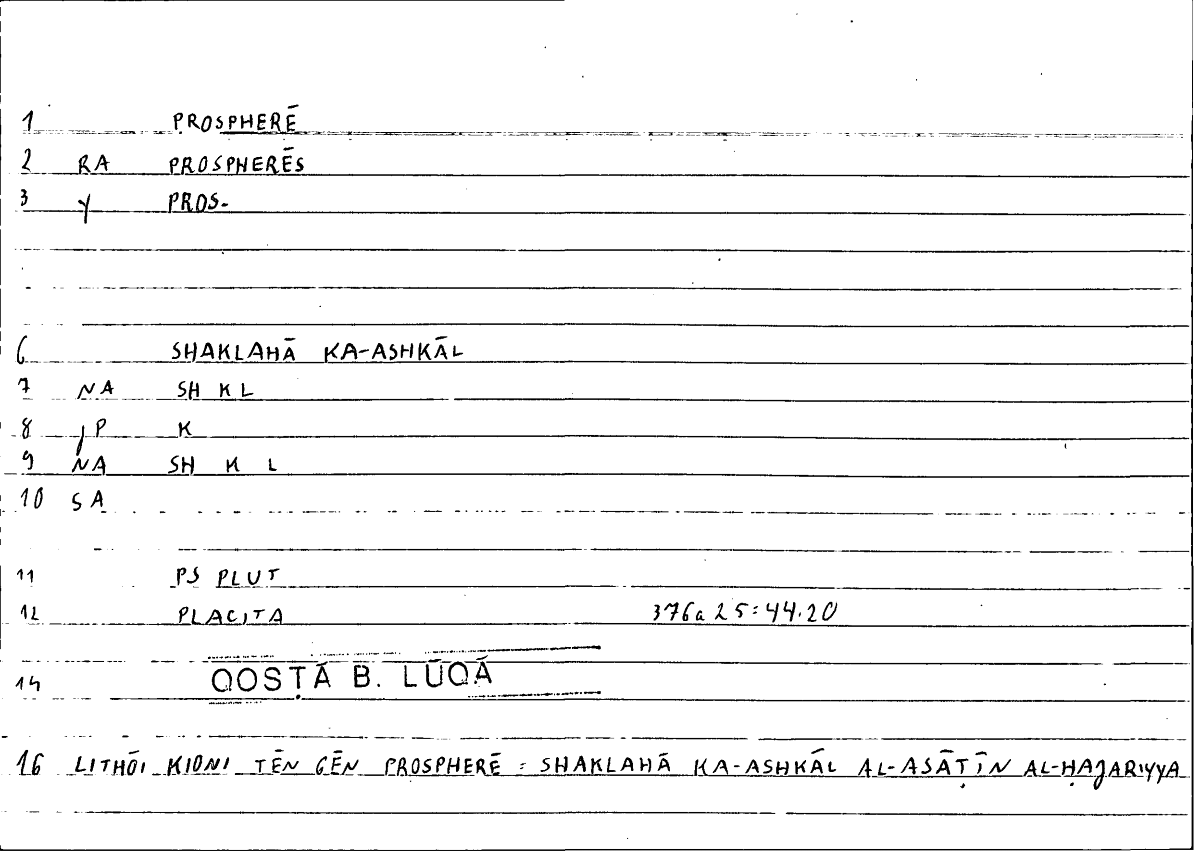 1 PROSPHERĒ
2 RA PROSPHERĒS
3 Y PROS-
6 SHAKLAHĀ KA-ASHKĀL
7 NA SH K L
8 JP K
9 NA SH K L
10 SA
11 PS PLUT
12 PLACITA 376a25:44.20
14 QOSṬĀ B. LŪQĀ
16 LITHŌI KIONI TĒN GĒN PROSPHERĒ = SHAKLAHĀ KA-ASHKĀL AL-ASĀṬĪN AL-ḤAJARIYYA